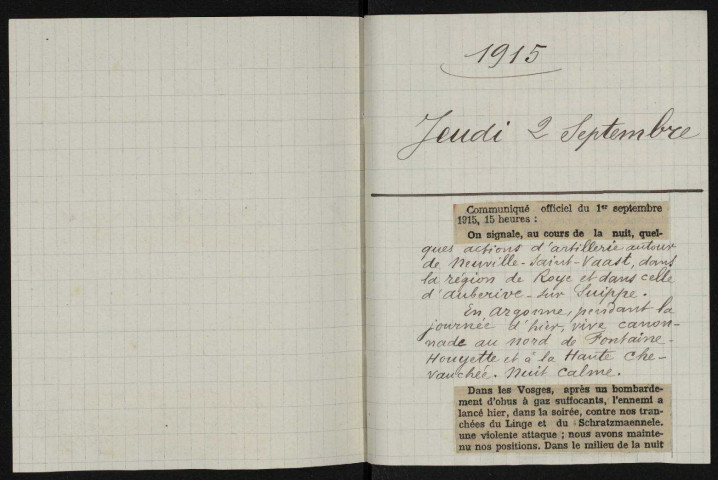 1915
Jeudi 2 Septembre
Communiqué officiel du 1er septembre
1915, 15 heures :
On signale, au cours de la nuit, quel-
ques actions d'artillerie autour
de Neuville-Saint-Vaast, dans
la région de Roye et dans celle
d'Auberive-sur Suippe.
En Argonne, pendant la
journée d'hier, vive canon-
nade au nord de Fontaine-
Houyette et à la Haute Che-
vauchée. Nuit calme.
Dans les Vosges, après un bombarde-
ment d'obus à gaz suffocants, l'ennemi a
lancé hier, dans la soirée, contre nos tran-
chées du Linge et du Schratzmaennele.
une violente attaque ; nous avons mainte-
nu nos positions. Dans le milieu de la nuit